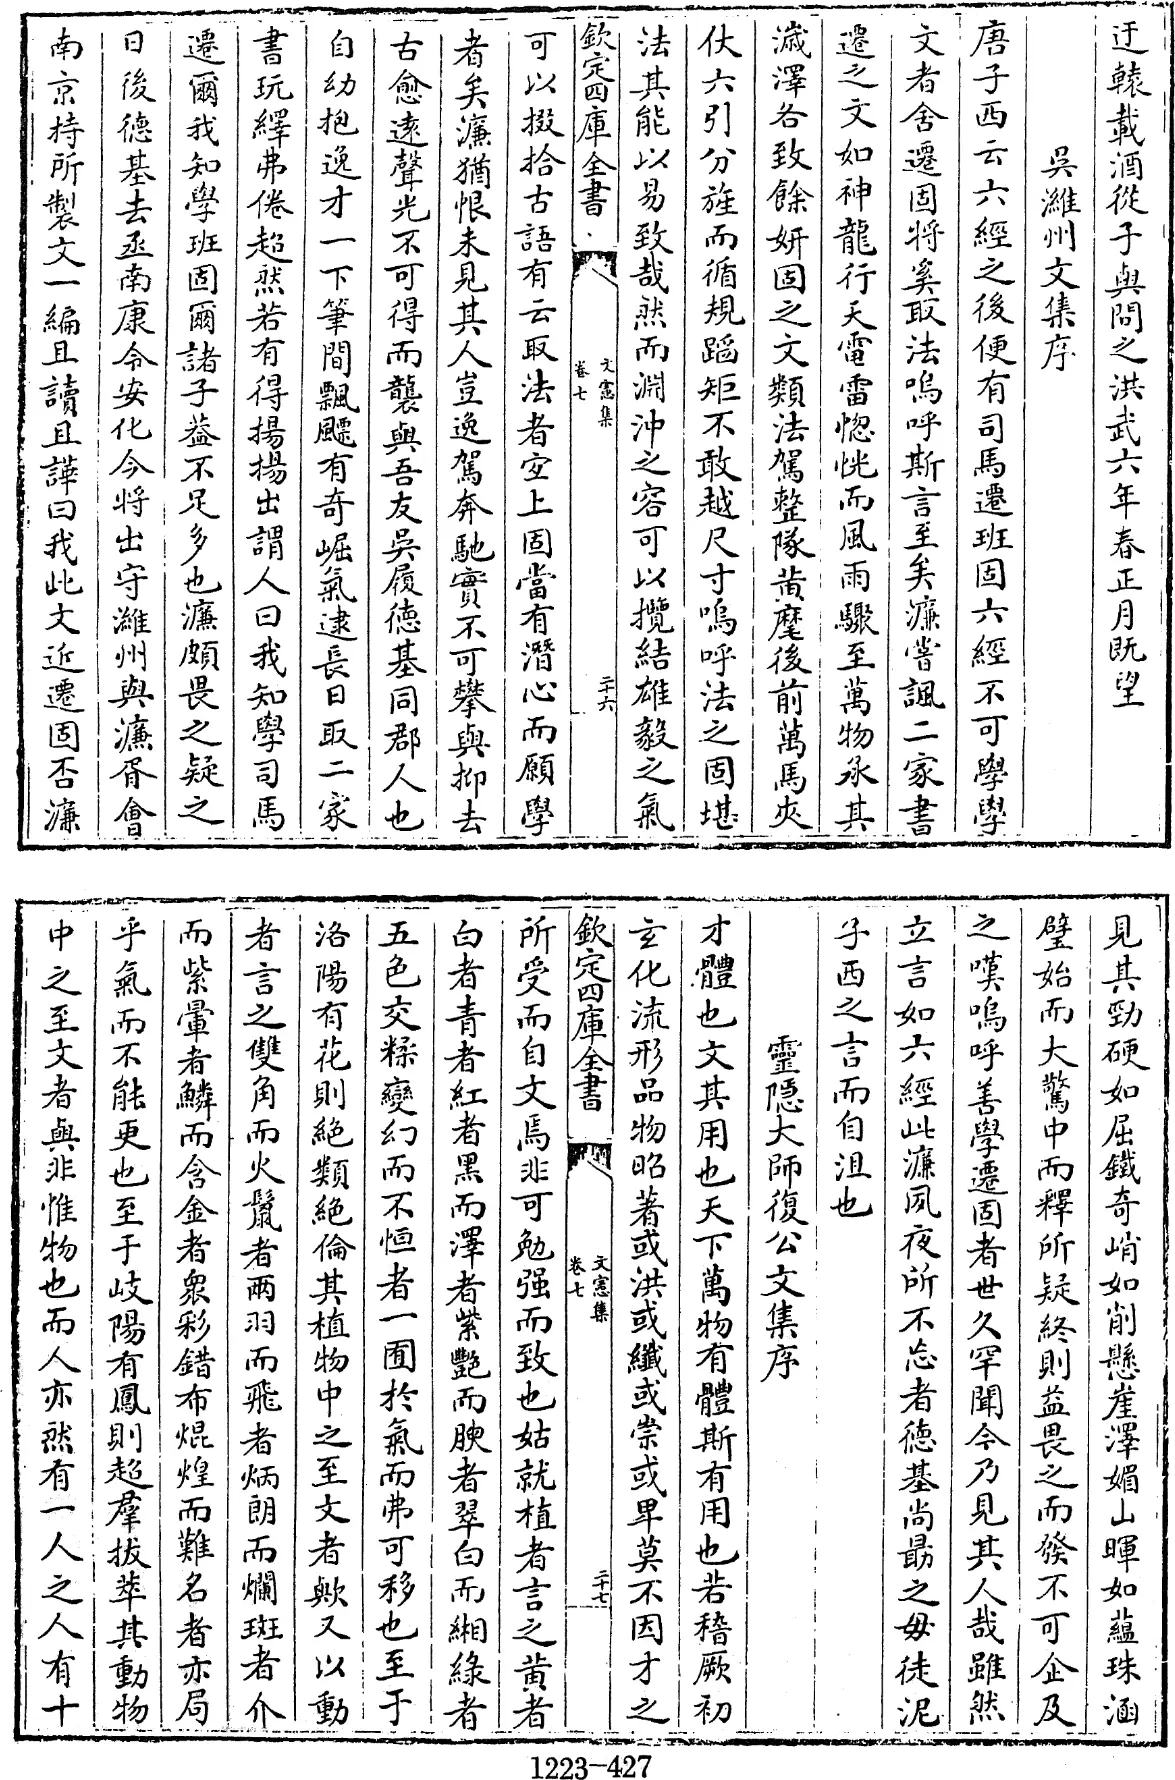 迂轅載酒從子與問之洪武六年春正月既望
吳濰州文集序
唐子西云六經之後便有司馬遷班固六經不可學學
文者舍遷固將奚取法嗚呼斯言至矣濂嘗諷二家書
遷之文如神龍行天電雷惚恍而風雨驟至萬物承其
濊澤各致餘妍固之文類法駕整隊黃麾後前萬馬夾
仗六引分旌而循規蹈矩不敢越尺寸嗚呼法之固堪
法其能以易致哉然而淵沖之容可以攬結雄毅之氣
欽定四庫全書
文憲集
卷七
二十六
可以掇拾古語有云取法者宜上固當有潛心而願學
者矣濂猶恨未見其人豈逸駕奔馳實不可攀與抑去
古愈遠聲光不可得而襲與吾友吳履德基同郡人也
自幼抱逸才一下筆間飄飄有奇崛氣逮長日取二家
書玩繹弗倦超然若有得揚揚出謂人曰我知學司馬
遷爾我知學班固爾諸子葢不足多也濂頗畏之疑之
日後德基去丞南康令安化今將出守濰州與濂胥會
南京持所製文一編且讀且譁曰我此文近遷固否濂
見其勁硬如屈鐵奇峭如削懸崖澤媚山暉如蘊珠涵
璧始而大驚中而釋所疑終則益畏之而發不可企及
之嘆嗚呼善學遷固者世久罕聞今乃見其人哉雖然
立言如六經此濂夙夜所不忘者德基尚勗之毋徒泥
子西之言而自沮也
靈隱大師復公文集序
才體也文其用也天下萬物有體斯有用也若稽厥初
玄化流形品物昭著或洪或纖或崇或卑莫不因才之
欽定四庫全書
文憲集
卷七
二十七
所受而自文焉非可勉强而致也姑就植者言之黃者
白者青者紅者黑而澤者紫艷而腴者翠白而緗綠者
五色交糅變幻而不恒者一囿於氣而弗可移也至于
洛陽有花則絕類絕倫其植物中之至文者歟又以動
者言之雙角而火鬣者兩羽而飛者炳朗而爛斑者介
而紫暈者鱗而含金者衆彩錯布焜煌而難名者亦局
乎氣而不能更也至于岐陽有鳳則超羣拔萃其動物
中之至文者與非惟物也而人亦然有一人之人有十
1223-427